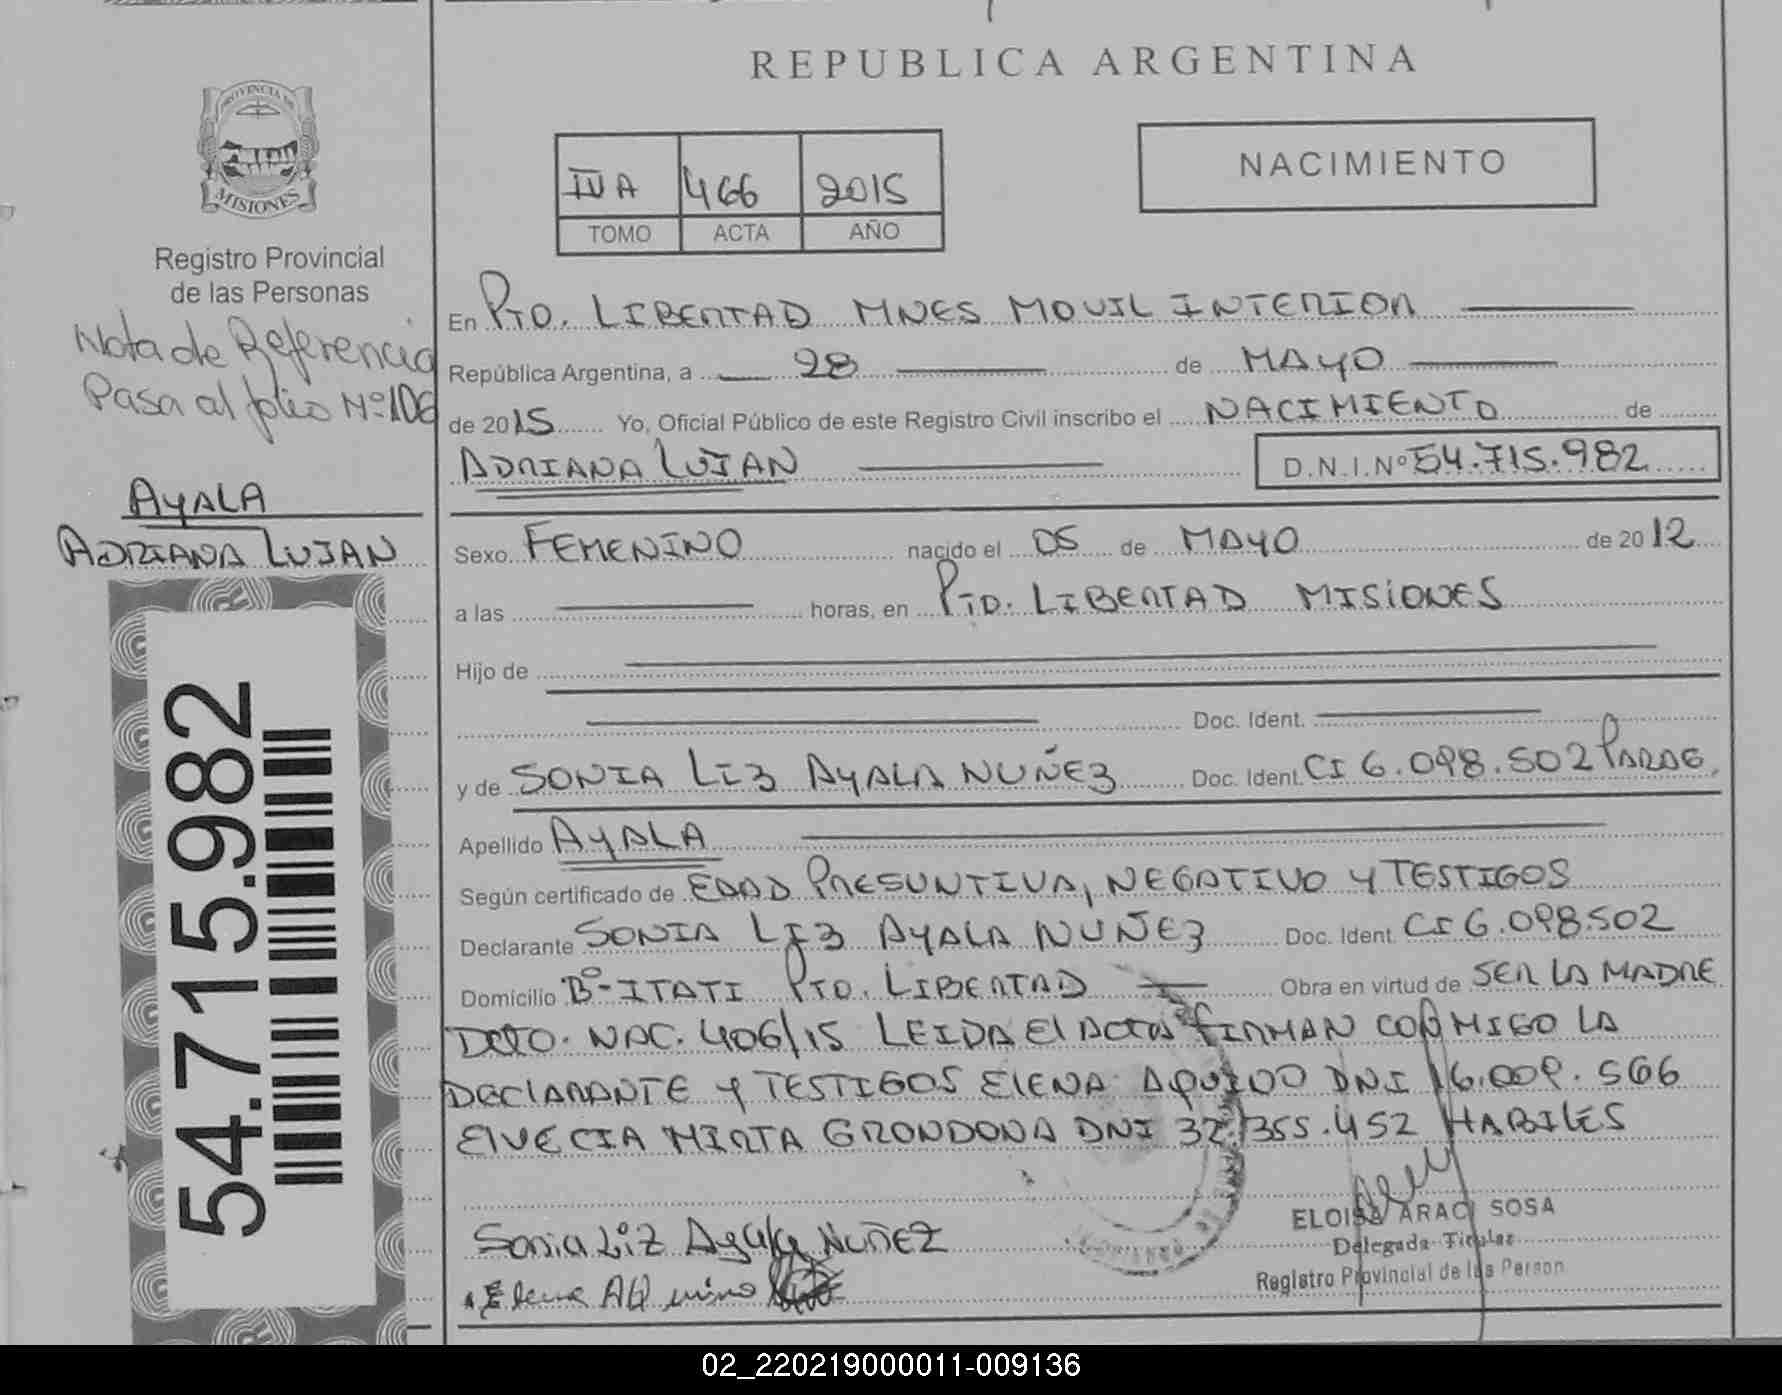 REPUBLICA ARGENTINA
PROVINCIA DE
MISIONES
Registro Provincial
de las Personas
Nota de Referencia
Pasa al folio Nº 106
AYALA
ADRIANA LUJAN
54.715.982
IVA 466 2015
TOMO ACTA AÑO
NACIMIENTO
En PTO. LIBERTAD MNES MOVIL INTERIOR
República Argentina, a 28 de MAYO
de 2015 Yo, Oficial Público de este Registro Civil inscribo el NACIMIENTO de
ADRIANA LUJAN D.N.I.Nº 54.715.982
Sexo FEMENINO nacido el 05 de MAYO de 2012
a las horas, en PTO. LIBERTAD MISIONES
Hijo de
Doc. Ident.
y de SONIA LIZ AYALA NUÑEZ Doc. Ident. CI 6.098.502 PARAG.
Apellido AYALA
Según certificado de EDAD PRESUNTIVA, NEGATIVO Y TESTIGOS
Declarante SONIA LIZ AYALA NUÑEZ Doc. Ident. CI 6.098.502
Domicilio Bº-ITATI PTO. LIBERTAD Obra en virtud de SER LA MADRE
DCTO. NAC. 406/15 LEIDA El ACTA FIRMAN CONMIGO LA
DECLARANTE Y TESTIGOS ELENA DNI 16.009.566
ELVECIA MIRTA GRONDONA DNI 37.355.452 HABILES
Sonia Liz Ayala NUÑEZ
Elena
ELOISA ARACI SOSA
Delegada Titular
Registro Provincial de las Person
02_220219000011-009136